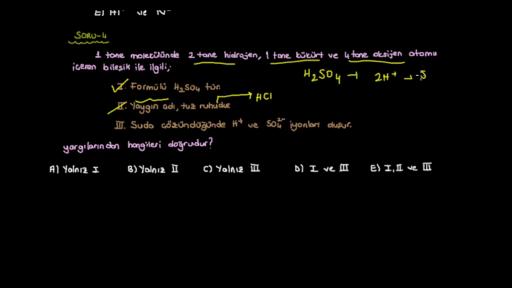 SORU-4
1 tane molekülünde 2 tane hidrojen, 1 tane kükürt ve 4 tane oksijen atomu
içeren bileşik ile ilgili;
H₂SO₄ → 2H⁺
I. Formülü H₂SO₄ tür.
II. Yaygın adı, tuz ruhudur → HCl
III. Suda çözündüğünde H⁺ ve SO₄²⁻ iyonları oluşur.
yargılarından hangileri doğrudur?
A) Yalnız I B) Yalnız II C) Yalnız III D) I ve III E) I, II ve III